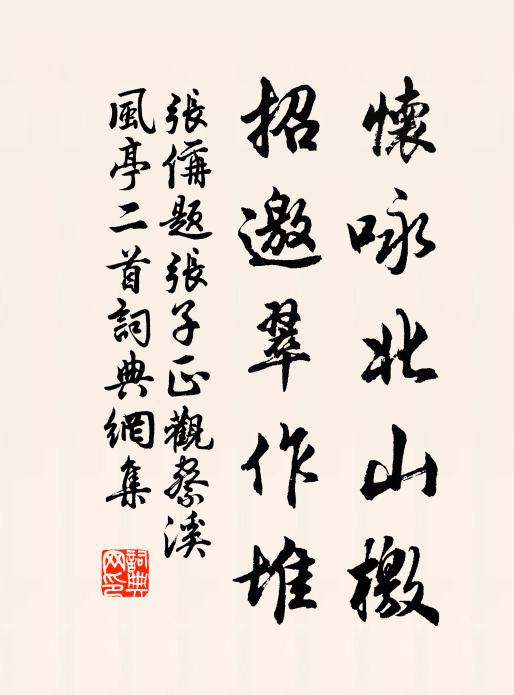 懷咏北山檄
招邀翠作堆
張侢題張子正觀祭溪
風亭二首詞典網集
詞典網印